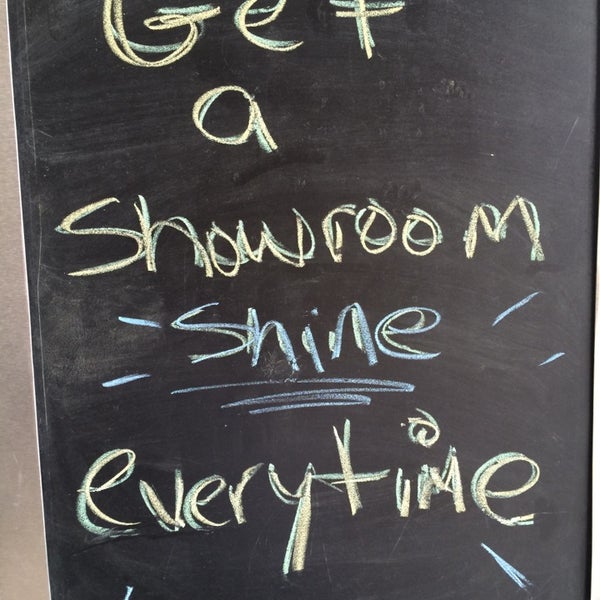 Get
a
Showroom
Shine
everytime